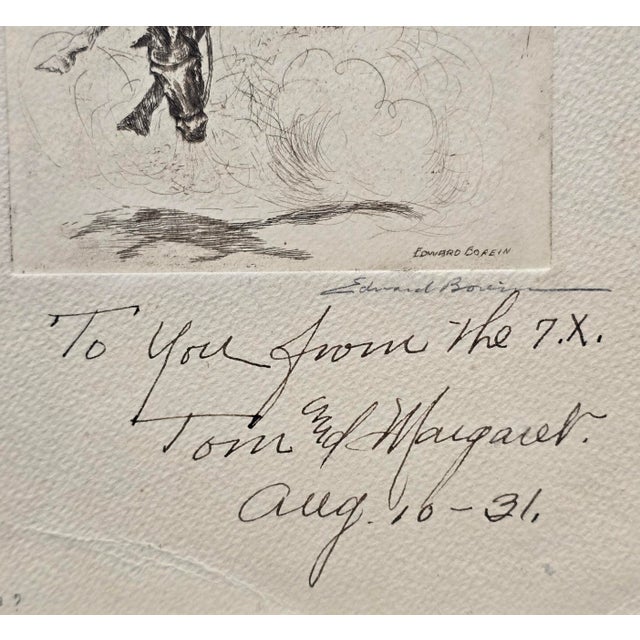 EDWARD BOREIN
Edward Borein
To You from the 7.X.
Tom and Margaret.
Aug. 10-31.
?